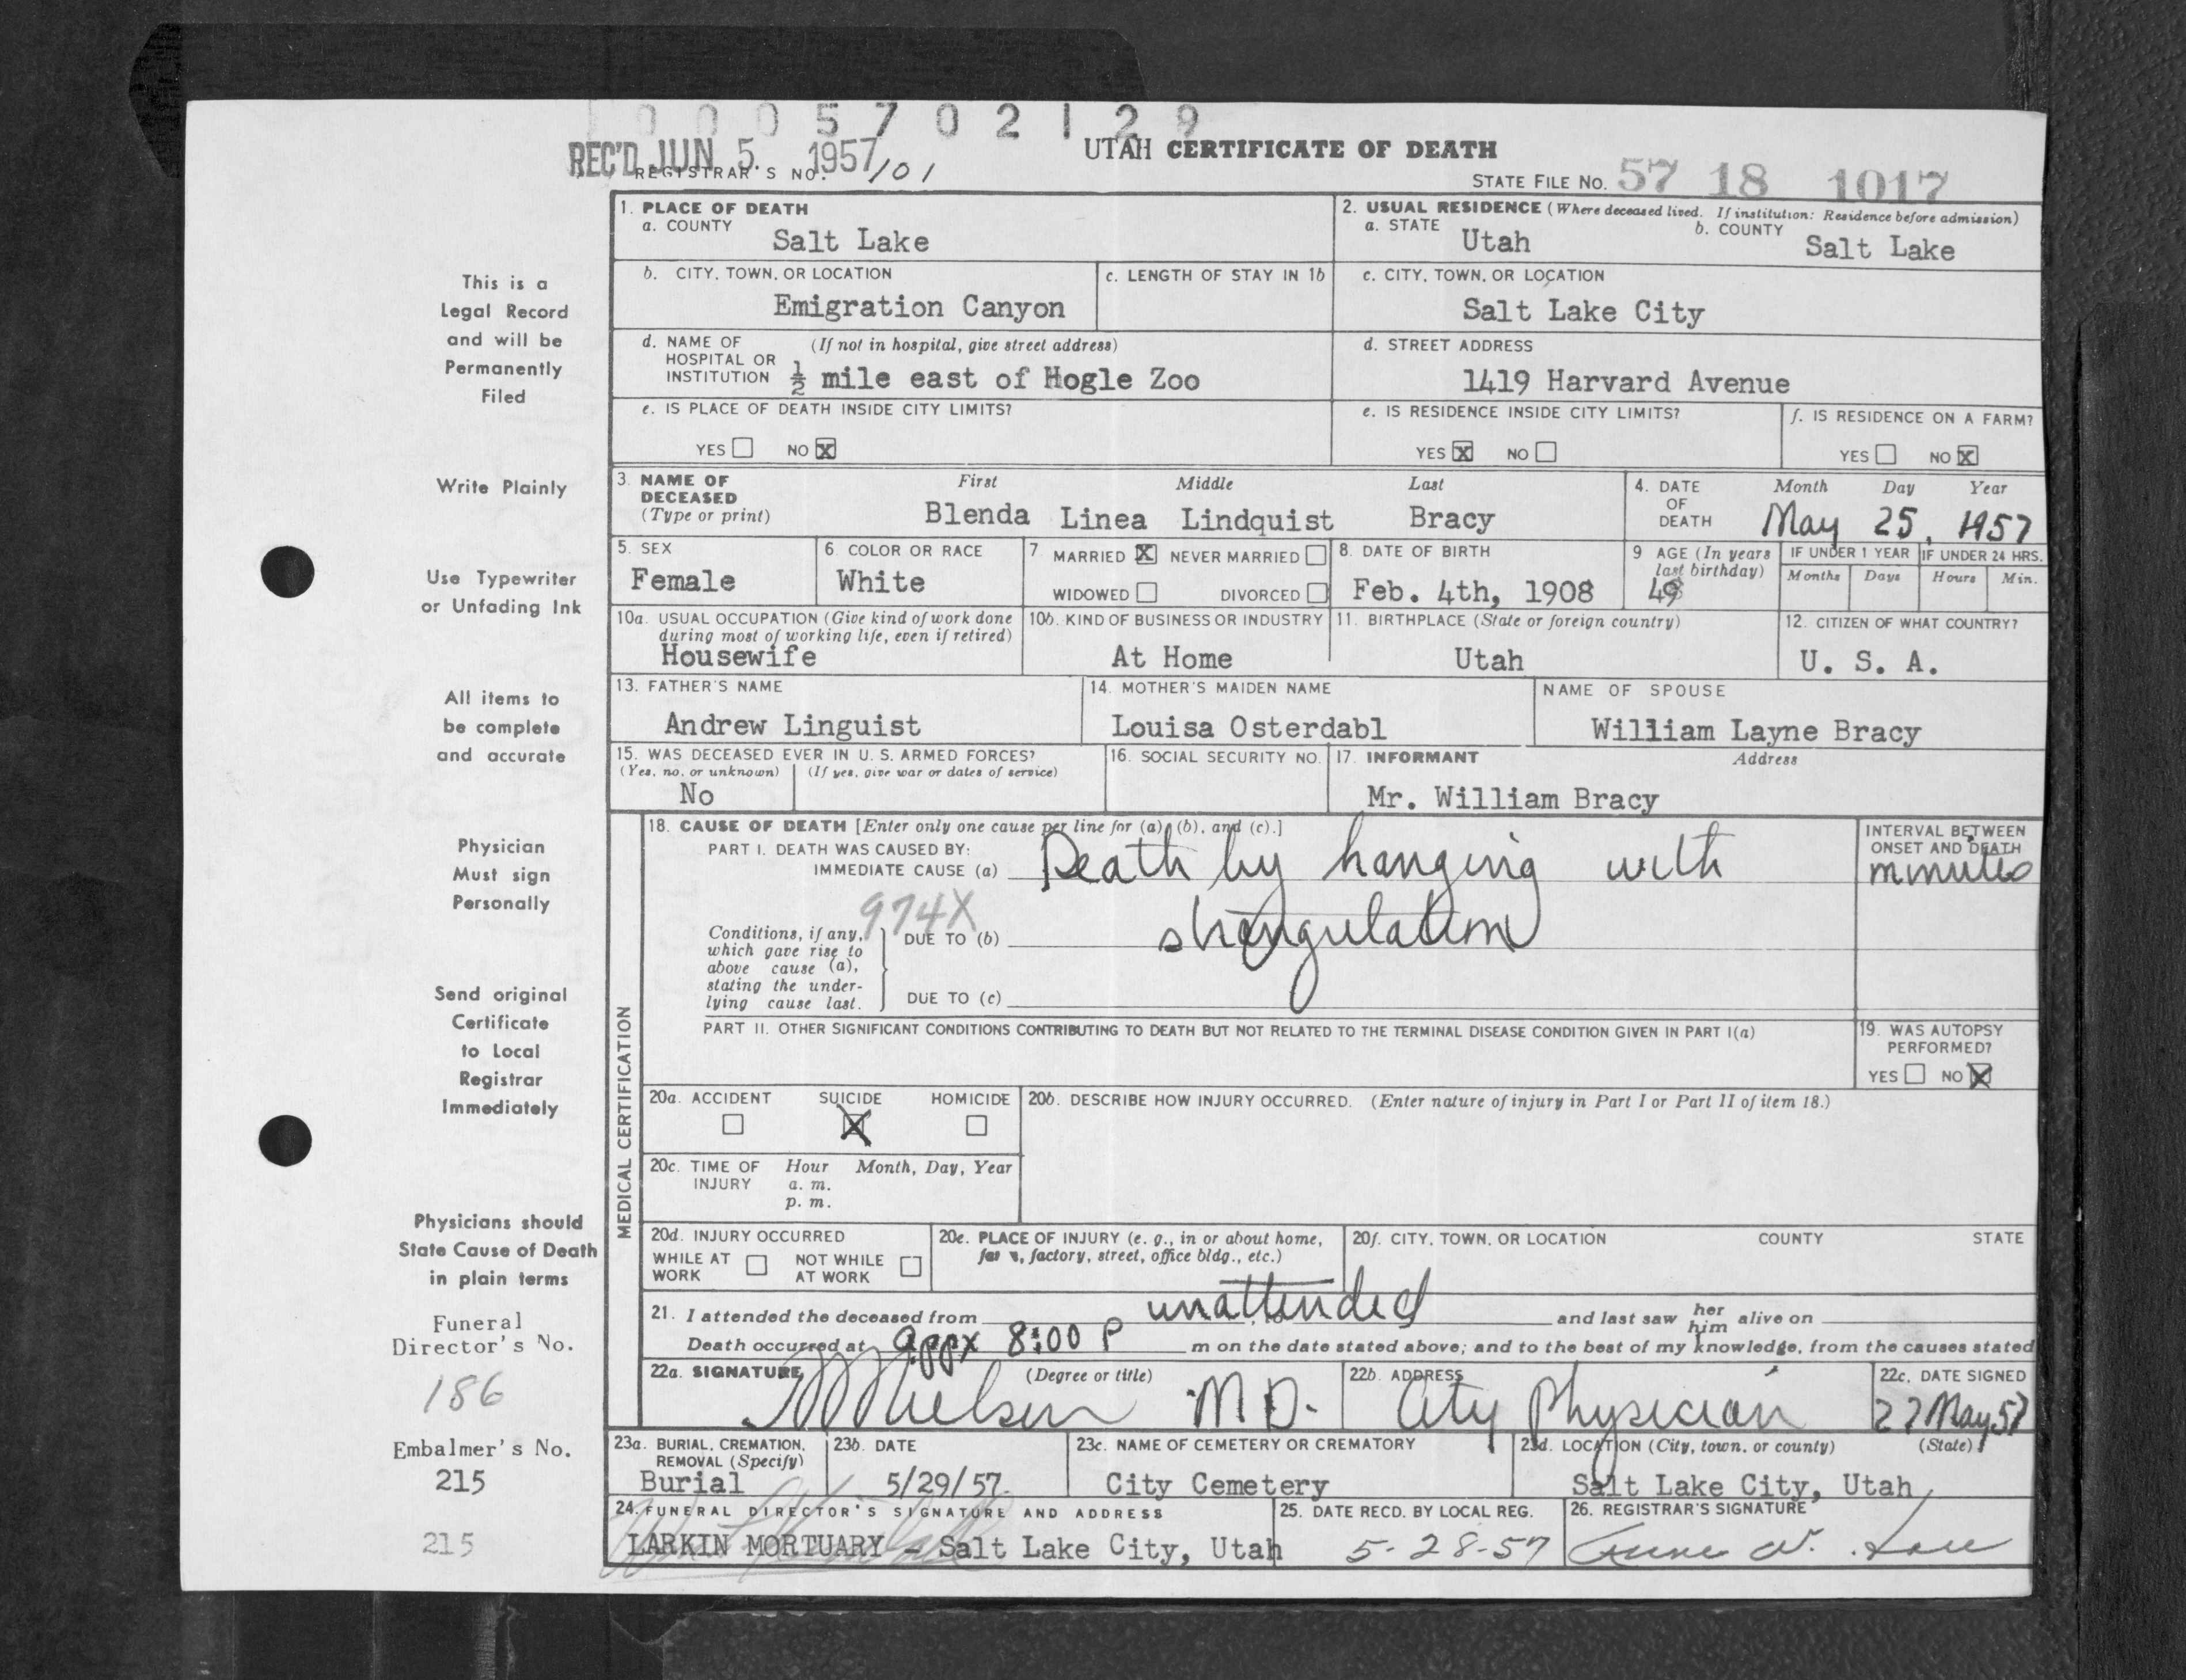 0 0 0 5 7 0 2 1 2 9
REC'D JUN 5 1957
REGISTRAR'S NO. 101
UTAH CERTIFICATE OF DEATH
STATE FILE NO. 57 18 1017
This is a
Legal Record
and will be
Permanently
Filed
Write Plainly
Use Typewriter
or Unfading Ink
All items to
be complete
and accurate
Physician
Must sign
Personally
Send original
Certificate
to Local
Registrar
Immediately
Physicians should
State Cause of Death
in plain terms
Funeral
Director's No.
186
Embalmer's No.
215
215
1. PLACE OF DEATH
a. COUNTY
Salt Lake
2. USUAL RESIDENCE (Where deceased lived. If institution: Residence before admission)
a. STATE Utah
b. COUNTY Salt Lake
b. CITY, TOWN, OR LOCATION
Emigration Canyon
c. LENGTH OF STAY IN 1b
c. CITY, TOWN, OR LOCATION
Salt Lake City
d. NAME OF (If not in hospital, give street address)
HOSPITAL OR
INSTITUTION ½ mile east of Hogle Zoo
d. STREET ADDRESS
1419 Harvard Avenue
e. IS PLACE OF DEATH INSIDE CITY LIMITS?
YES NO X
e. IS RESIDENCE INSIDE CITY LIMITS?
YES X NO
f. IS RESIDENCE ON A FARM?
YES NO X
3. NAME OF
DECEASED
(Type or print)
First Middle Last
Blenda Linea Lindquist Bracy
4. DATE
OF
DEATH
Month Day Year
May 25, 1957
5. SEX
Female
6. COLOR OR RACE
White
7 MARRIED X NEVER MARRIED
WIDOWED DIVORCED
8. DATE OF BIRTH
Feb. 4th, 1908
9 AGE (In years
last birthday)
49
IF UNDER 1 YEAR
Months Days
IF UNDER 24 HRS.
Hours Min.
10a. USUAL OCCUPATION (Give kind of work done
during most of working life, even if retired)
Housewife
10b. KIND OF BUSINESS OR INDUSTRY
At Home
11. BIRTHPLACE (State or foreign country)
Utah
12. CITIZEN OF WHAT COUNTRY?
U. S. A.
13. FATHER'S NAME
Andrew Linguist
14. MOTHER'S MAIDEN NAME
Louisa Osterdabl
NAME OF SPOUSE
William Layne Bracy
15. WAS DECEASED EVER IN U. S. ARMED FORCES?
(Yes, no, or unknown) (If yes, give war or dates of service)
No
16. SOCIAL SECURITY NO.
17. INFORMANT Address
Mr. William Bracy
MEDICAL CERTIFICATION
18. CAUSE OF DEATH [Enter only one cause per line for (a), (b), and (c).]
PART I. DEATH WAS CAUSED BY:
IMMEDIATE CAUSE (a) Death by hanging with
INTERVAL BETWEEN
ONSET AND DEATH
minutes
974X
Conditions, if any,
which gave rise to
above cause (a),
stating the under-
lying cause last.
DUE TO (b) strangulation
DUE TO (c)
PART II. OTHER SIGNIFICANT CONDITIONS CONTRIBUTING TO DEATH BUT NOT RELATED TO THE TERMINAL DISEASE CONDITION GIVEN IN PART I(a)
19. WAS AUTOPSY
PERFORMED?
YES NO X
20a. ACCIDENT SUICIDE HOMICIDE
X
20b. DESCRIBE HOW INJURY OCCURRED. (Enter nature of injury in Part I or Part II of item 18.)
20c. TIME OF Hour Month, Day, Year
INJURY a. m.
p. m.
20d. INJURY OCCURRED
WHILE AT NOT WHILE
WORK AT WORK
20e. PLACE OF INJURY (e. g., in or about home,
farm, factory, street, office bldg., etc.)
20f. CITY, TOWN, OR LOCATION COUNTY STATE
21. I attended the deceased from unattended and last saw her him alive on
Death occurred at appx 8:00 P m on the date stated above; and to the best of my knowledge, from the causes stated
22a. SIGNATURE (Degree or title)
Nielsen M D.
22b. ADDRESS
City Physician
22c. DATE SIGNED
27 May 57
23a. BURIAL, CREMATION,
REMOVAL (Specify)
Burial
23b. DATE
5/29/57
23c. NAME OF CEMETERY OR CREMATORY
City Cemetery
23d. LOCATION (City, town, or county) (State)
Salt Lake City, Utah
24. FUNERAL DIRECTOR'S SIGNATURE AND ADDRESS
LARKIN MORTUARY - Salt Lake City, Utah
25. DATE RECD. BY LOCAL REG.
5-28-57
26. REGISTRAR'S SIGNATURE